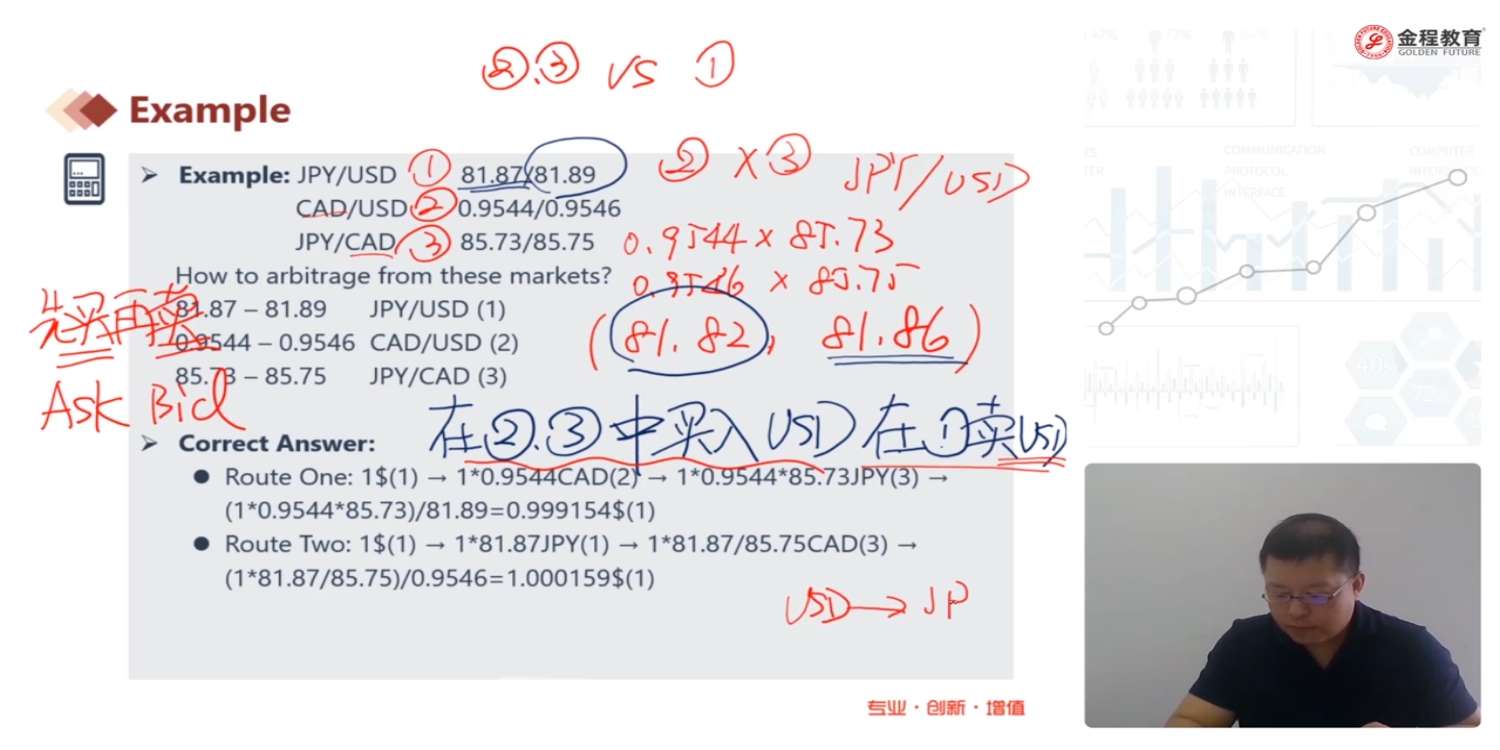 ②.③ VS ①
金程教育
GOLDEN FUTURE
Example
Example: JPY/USD ① 81.87/81.89
② X ③ JPY/USD
CAD/USD ② 0.9544/0.9546
JPY/CAD ③ 85.73/85.75
0.9544 × 85.73
How to arbitrage from these markets?
0.9546 × 85.75
81.87 – 81.89 JPY/USD (1)
先买再卖
0.9544 – 0.9546 CAD/USD (2)
(81.82, 81.86)
85.73 – 85.75 JPY/CAD (3)
Ask Bid
在②.③中买入USD在①卖USD
Correct Answer:
Route One: 1$(1) → 1*0.9544CAD(2) → 1*0.9544*85.73JPY(3) →
(1*0.9544*85.73)/81.89=0.999154$(1)
Route Two: 1$(1) → 1*81.87JPY(1) → 1*81.87/85.75CAD(3) →
(1*81.87/85.75)/0.9546=1.000159$(1)
USD → JP
专业·创新·增值
COMMUNICATION
PROTOCOL
INTERFACE
COMPUTER